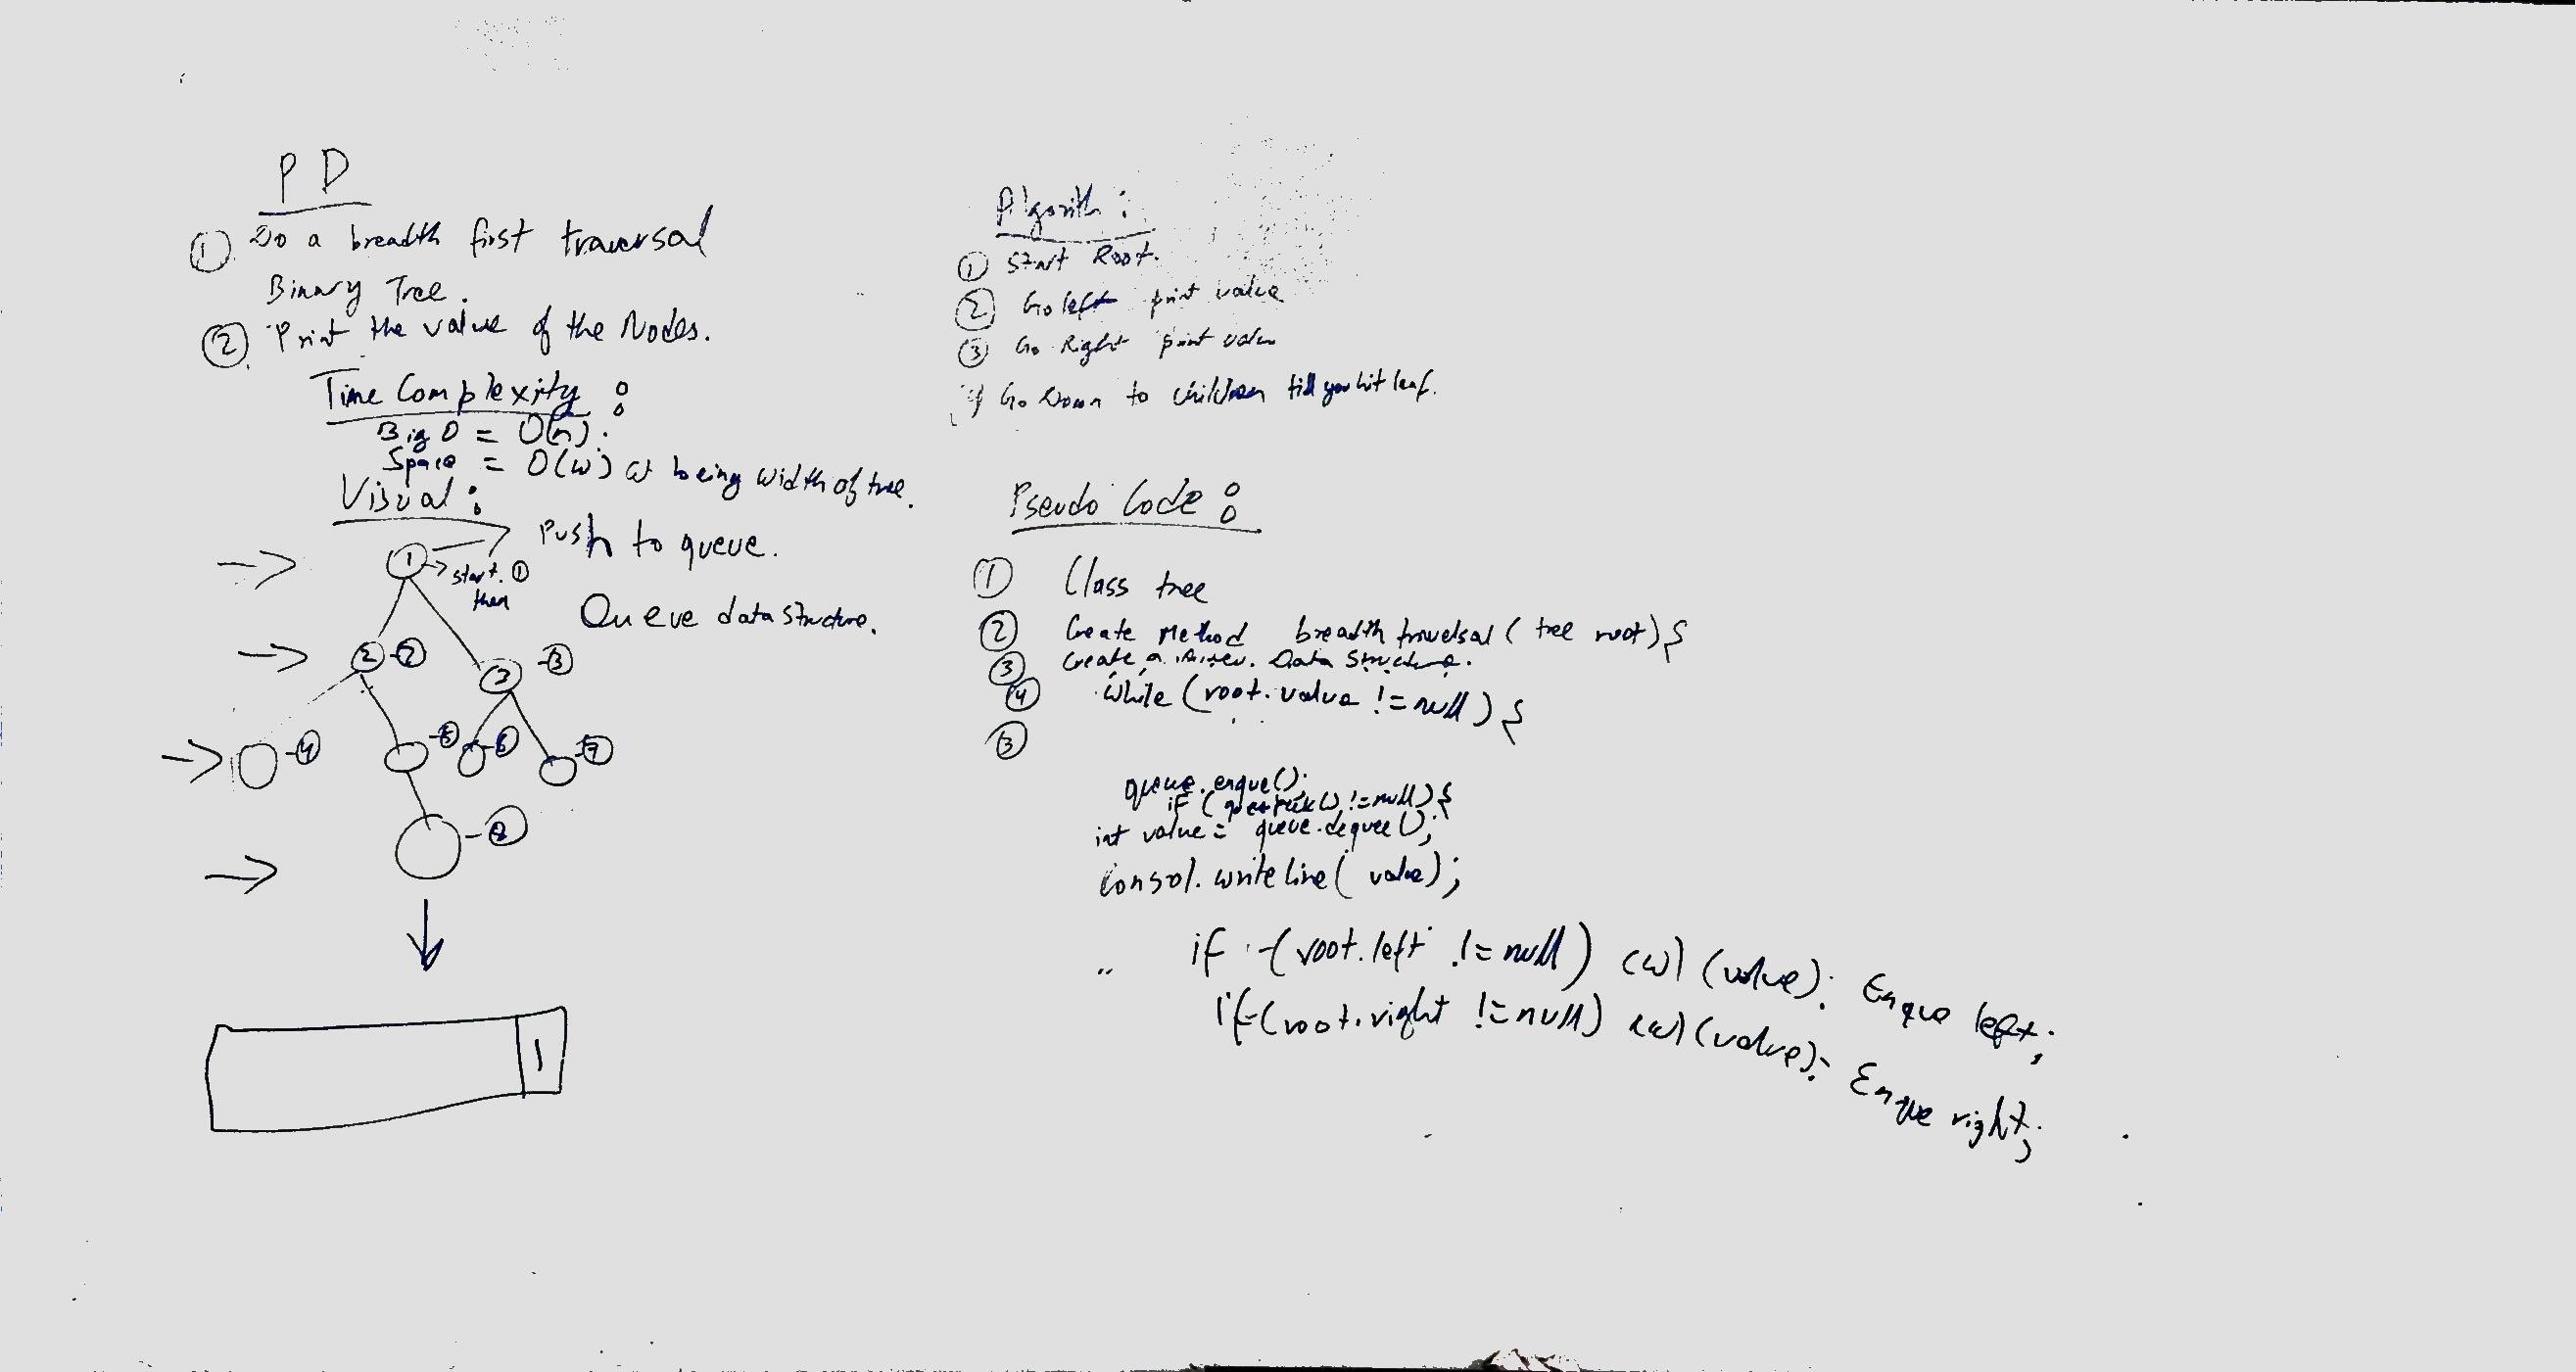 PD
① Do a breadth first traversal
Binary Tree.
② Print the value of the Nodes.
Time Complexity :
Big O = O(n).
Space = O(w) w being width of tree.
Visual :
Push to queue.
① → start. ①
then
Queue data structure.
② -② ③ -③
-④ -⑤ -⑥ -⑦
-⑧
1
Algorith :
① Start Root.
② Go left print value
③ Go Right print value
Go Down to children till you hit leaf.
Pseudo Code :
① Class tree
② Create Method breadth travelsal ( tree root) {
③ Create a Data Structure.
④ while (root.value != null ) {
⑤
queue.enque();
if ( != null) {
int value = queue.dequee();
Consol.write line( value);
if (root.left != null) cwl (value); Enque left;
if (root.right != null) cwl (value); Enque right;